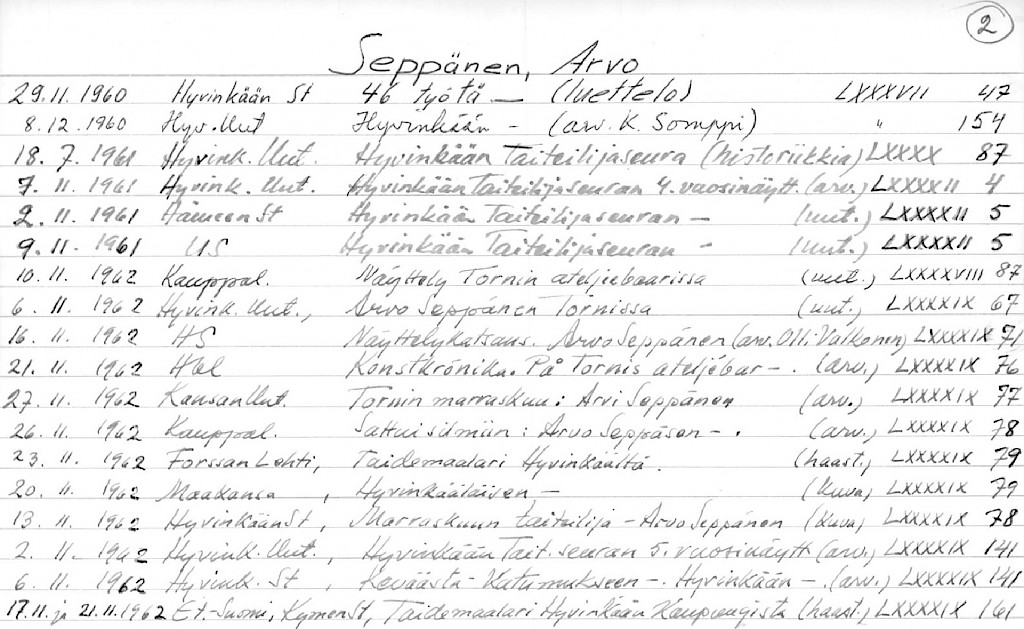 2
Seppänen, Arvo
29.11.1960 Hyvinkään St 46 työtä — (luettelo) LXXXVII 47
8.12.1960 Hyv.Uut Hyvinkään - (arv. K. Somppi) " 154
18.7.1961 Hyvink.Uut. Hyvinkään Taiteilijaseura (historiikkia) LXXXX 87
7.11.1961 Hyvink.Uut. Hyvinkään Taiteilijaseuran 4. vuosinäytt. (arv.) LXXXXII 4
2.11.1961 Hämeen St Hyvinkään Taiteilijaseuran - (uut.) LXXXXII 5
9.11.1961 US Hyvinkään Taiteilijaseuran - (uut.) LXXXXII 5
10.11.1962 Kauppal. Näyttely Tornin ateljeebaarissa (uut.) LXXXXVIII 87
6.11.1962 Hyvink.Uut., Arvo Seppänen Tornissa (uut.) LXXXXIX 67
16.11.1962 HS Näyttelykatsaus. Arvo Seppänen (arv. Olli Valkonen) LXXXXIX 71
21.11.1962 Hbl Konstkrönika. På Tornis ateljébar -. (arv.) LXXXXIX 76
27.11.1962 Kansan Uut. Tornin marraskuu: Arvi Seppänen (arv.) LXXXXIX 77
26.11.1962 Kauppal. Sattui silmiin: Arvo Seppäsen -. (arv.) LXXXXIX 78
23.11.1962 Forssan Lehti, Taidemaalari Hyvinkäältä. (haast.) LXXXXIX 79
20.11.1962 Maakansa, Hyvinkääläisen - (kuva) LXXXXIX 79
13.11.1962 Hyvinkään St, Marraskuun taiteilija - Arvo Seppänen (kuva) LXXXXIX 78
2.11.1962 Hyvink.Uut., Hyvinkään Tait.seuran 5. vuosinäytt (arv.) LXXXXIX 141
6.11.1962 Hyvink.St, Keväästä - Kutumukseen -. Hyvinkään -. (arv.) LXXXXIX 141
17.11. ja 21.11.1962 Et-Suomi, Kymen St, Taidemaalari Hyvinkään kaupungista (haast.) LXXXXIX 161